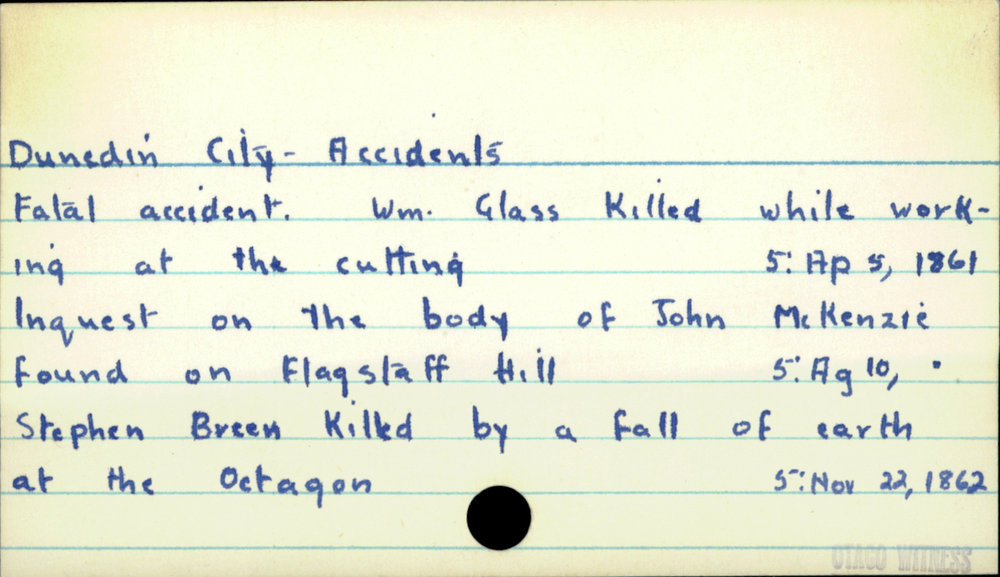 Dunedin City - Accidents
Fatal accident. Wm. Glass Killed while work-
ing at the cutting 5: Ap 5, 1861
Inquest on the body of John McKenzie
found on Flagstaff Hill 5: Ag 10, "
Stephen Breen Killed by a fall of earth
at the Octagon 5: Nov 22, 1862
OTAGO WITNESS